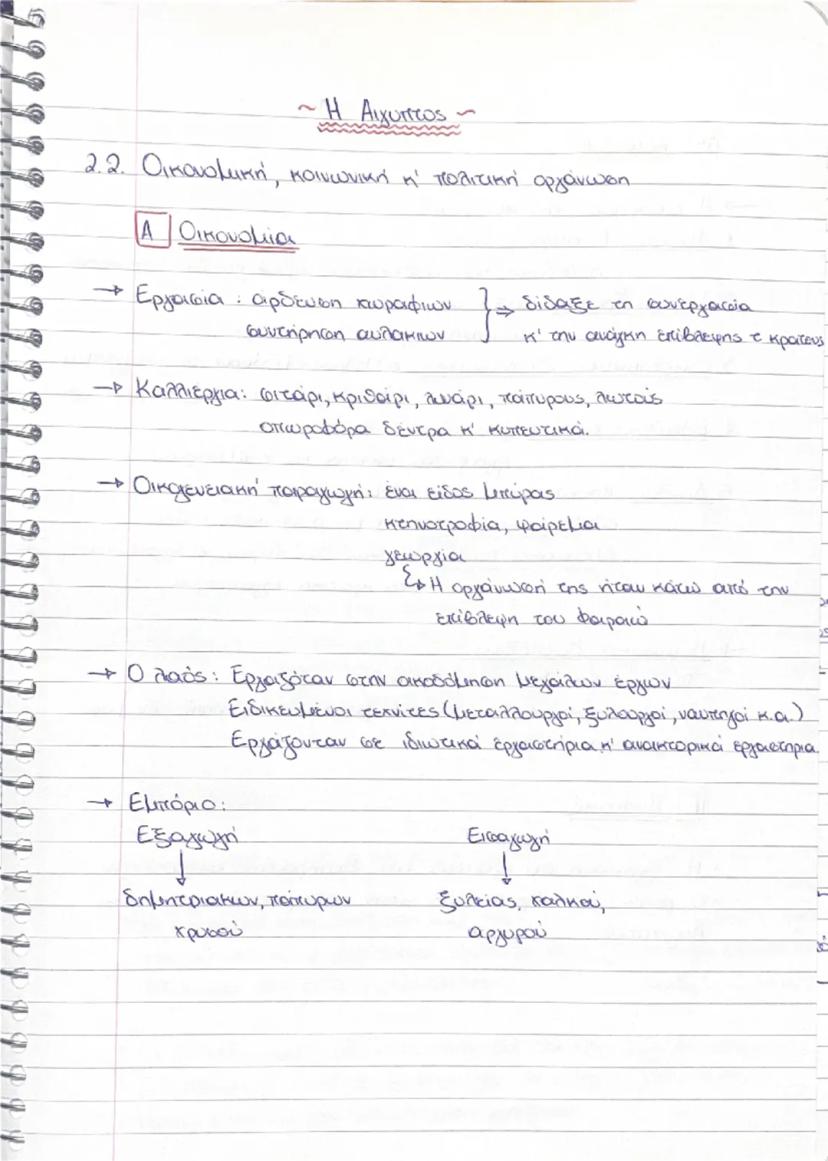 ~ Η Αιγυπτος ~
2.2. Οικονομική, κοινωνική κ' πολιτική οργάνωση
Α Οικονομία
→ Εργασία : άρδευση χωραφιών } ⇒ δίδαξε τη συνεργασία
συντήρηση αυλακιών κ' την ανάγκη επίβλεψης τ κράτους
→ Καλλιέργια: σιτάρι, κριθάρι, λινάρι, πάπυρους, λωτούς
οπωροφόρα δέντρα κ' κηπευτικά.
→ Οικογενειακή παραγωγή: ένα είδος μπύρας
κτηνοτροφία, ψάρεμα
γεωργία
↳ Η οργάνωσή της ήταν κάτω από την
επίβλεψη του Φαραώ
→ Ο λαός : Εργαζόταν στην οικοδόμηση μεγάλων έργων
Ειδικευμένοι τεχνίτες (μεταλλουργοί, ξυλουργοί, ναυπηγοί κ.α.)
Εργάζονταν σε ιδιωτικά εργαστήρια κ' ανακτορικά εργαστηρια
→ Εμπόριο:
Εξαγωγή Εισαγωγή
↓ ↓
δημητριακων, παπύρων ξυλείας, χαλκού,
χρυσού αργύρου